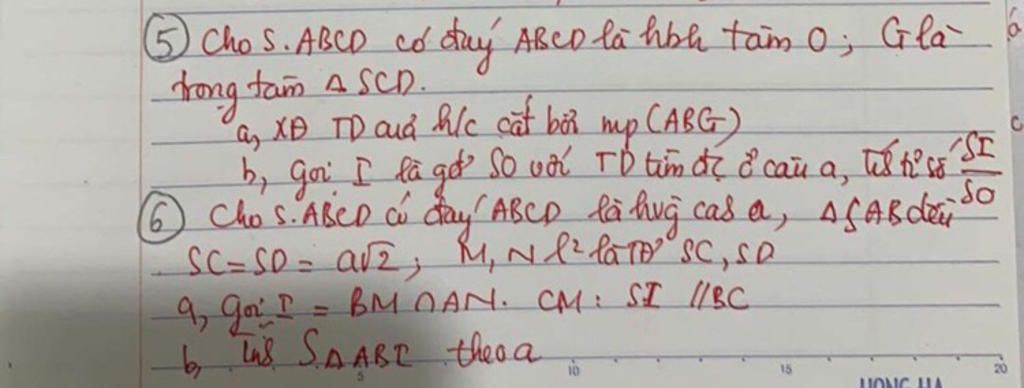 ⑤ Cho S.ABCD có đáy ABCD là hbh tâm O; G là
trọng tâm Δ SCD.
a, XĐ TD của h/c cắt bởi mp (ABG)
b, gọi I là gđ SO với TD tìm đc ở câu a, tính tỉ số SI/SO
⑥ Cho S.ABCD có đáy ABCD là hvg cạnh a, Δ SAB đều
SC = SD = a√2; M, N l² là TĐ SC, SD
a, gọi I = BM ∩ AN. CM: SI // BC
b, S Δ ABI theo a
5 10 15 20
HONG HA